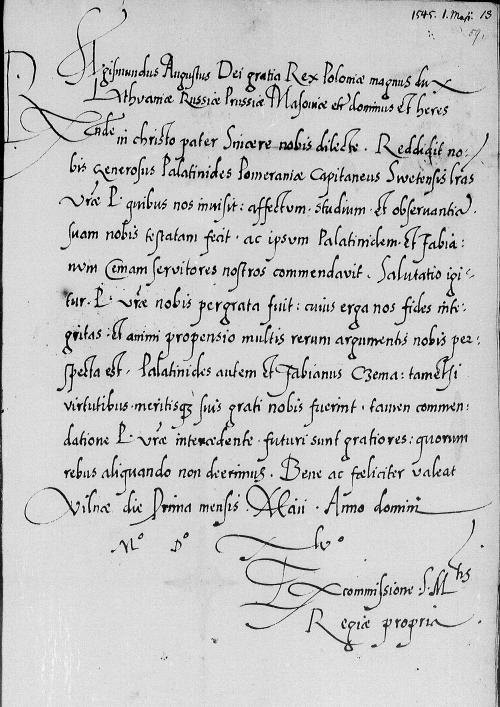 1545. 1. Maji. 13
59.
Sigismundus Augustus Dei gratia Rex Poloniæ magnus dux
Lithuaniæ Russiæ Prussiæ Masoviæ etc dominus et heres
Rnde in christo pater Sincere nobis dilecte. Reddidit no-
bis generosus Palatinides Pomeraniæ Capitaneus Swetensis lras
vræ P. quibus nos invisit: affectum. studium. et observantiā
suam nobis testatam fecit. ac ipsum Palatinidem. et Fabia:
num Cemam servitores nostros commendavit. Salutatio igi-
tur. P. vræ nobis pergrata fuit: cuius erga nos fides inte-
gritas. et animi propensio multis rerum argumentis nobis per:
specta est. Palatinides autem et Fabianus Czema: tametsi
virtutibus. meritisq; suis grati nobis fuerint. tamen commen:
datione P. vræ intercedente. futuri sunt gratiores: quorum
rebus aliquando non deerimus. Bene ac fœliciter valeat
Vilnæ die Prima mensis. Maii. Anno domini
Mo Do xlvo
Ex commissione S. Mtis
Regiæ propria.